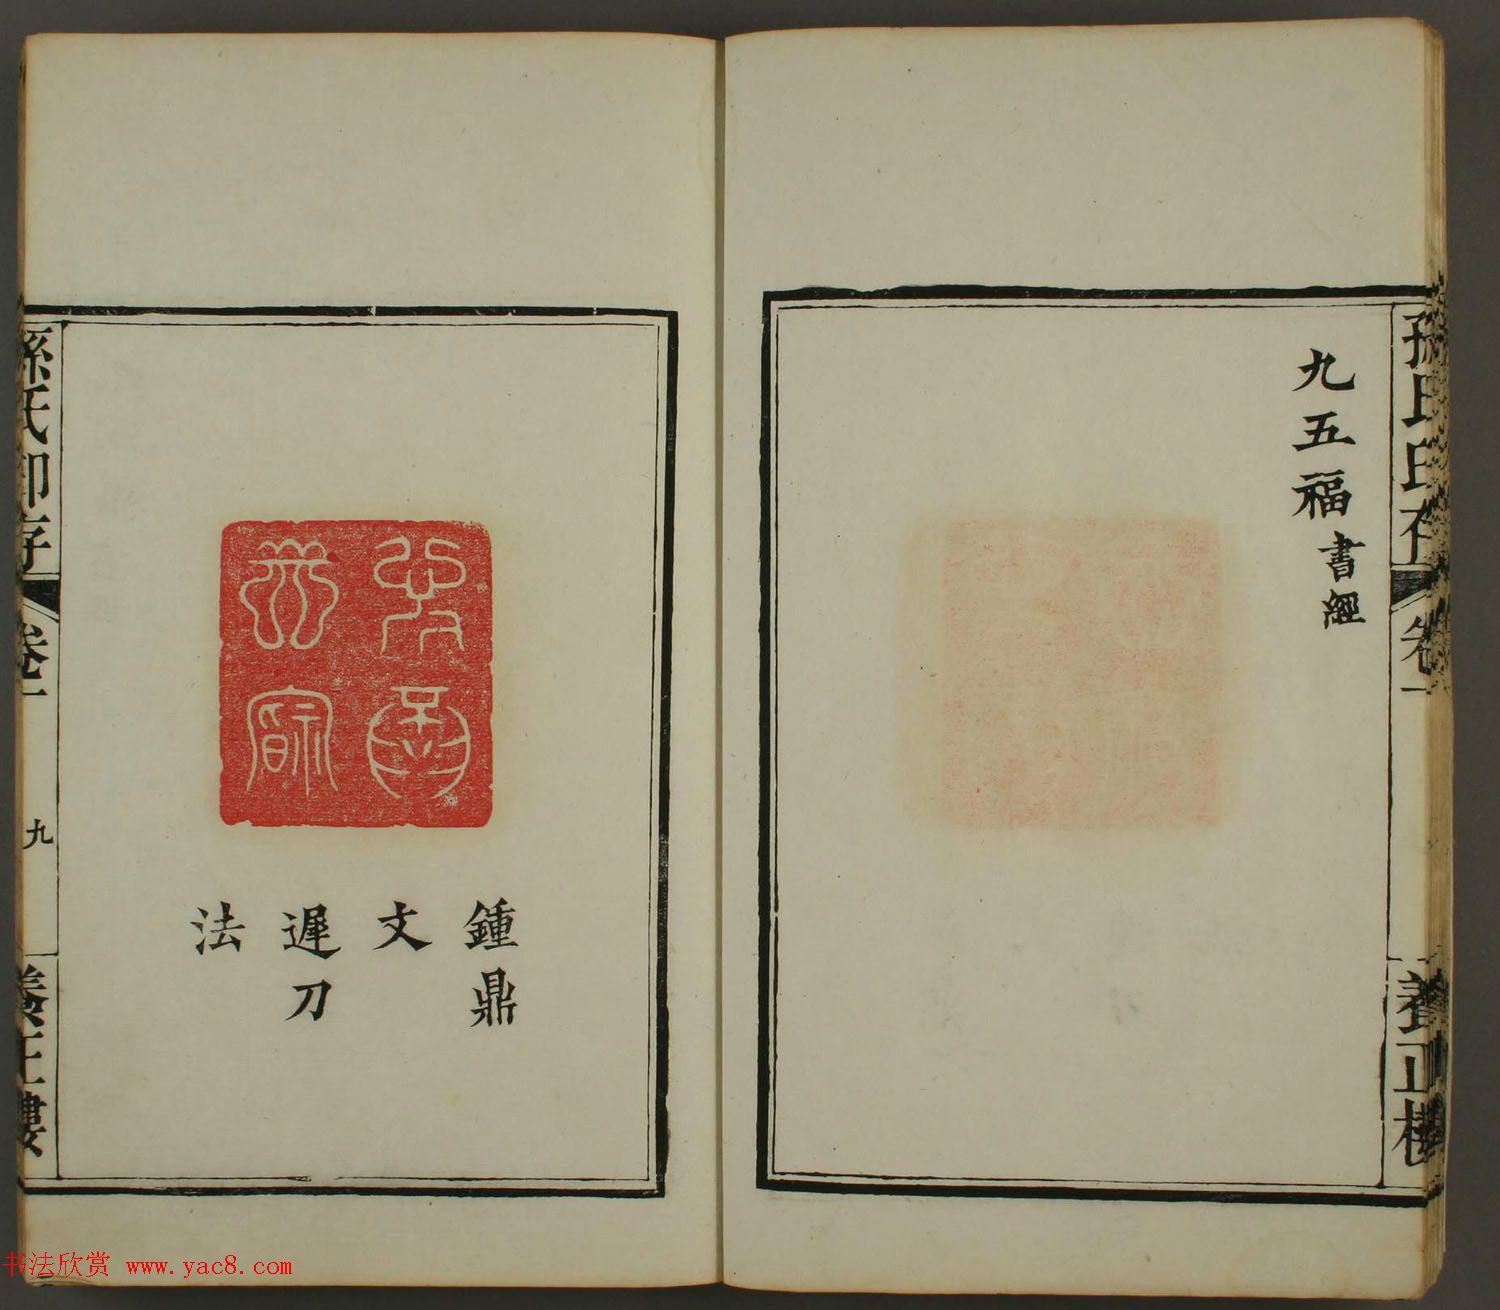 孫氏印存
卷一
養正樓
九五福書經
鍾鼎
文
遲刀
法
孫氏印存
卷一
九
養正樓
书法欣赏 www.yac8.com